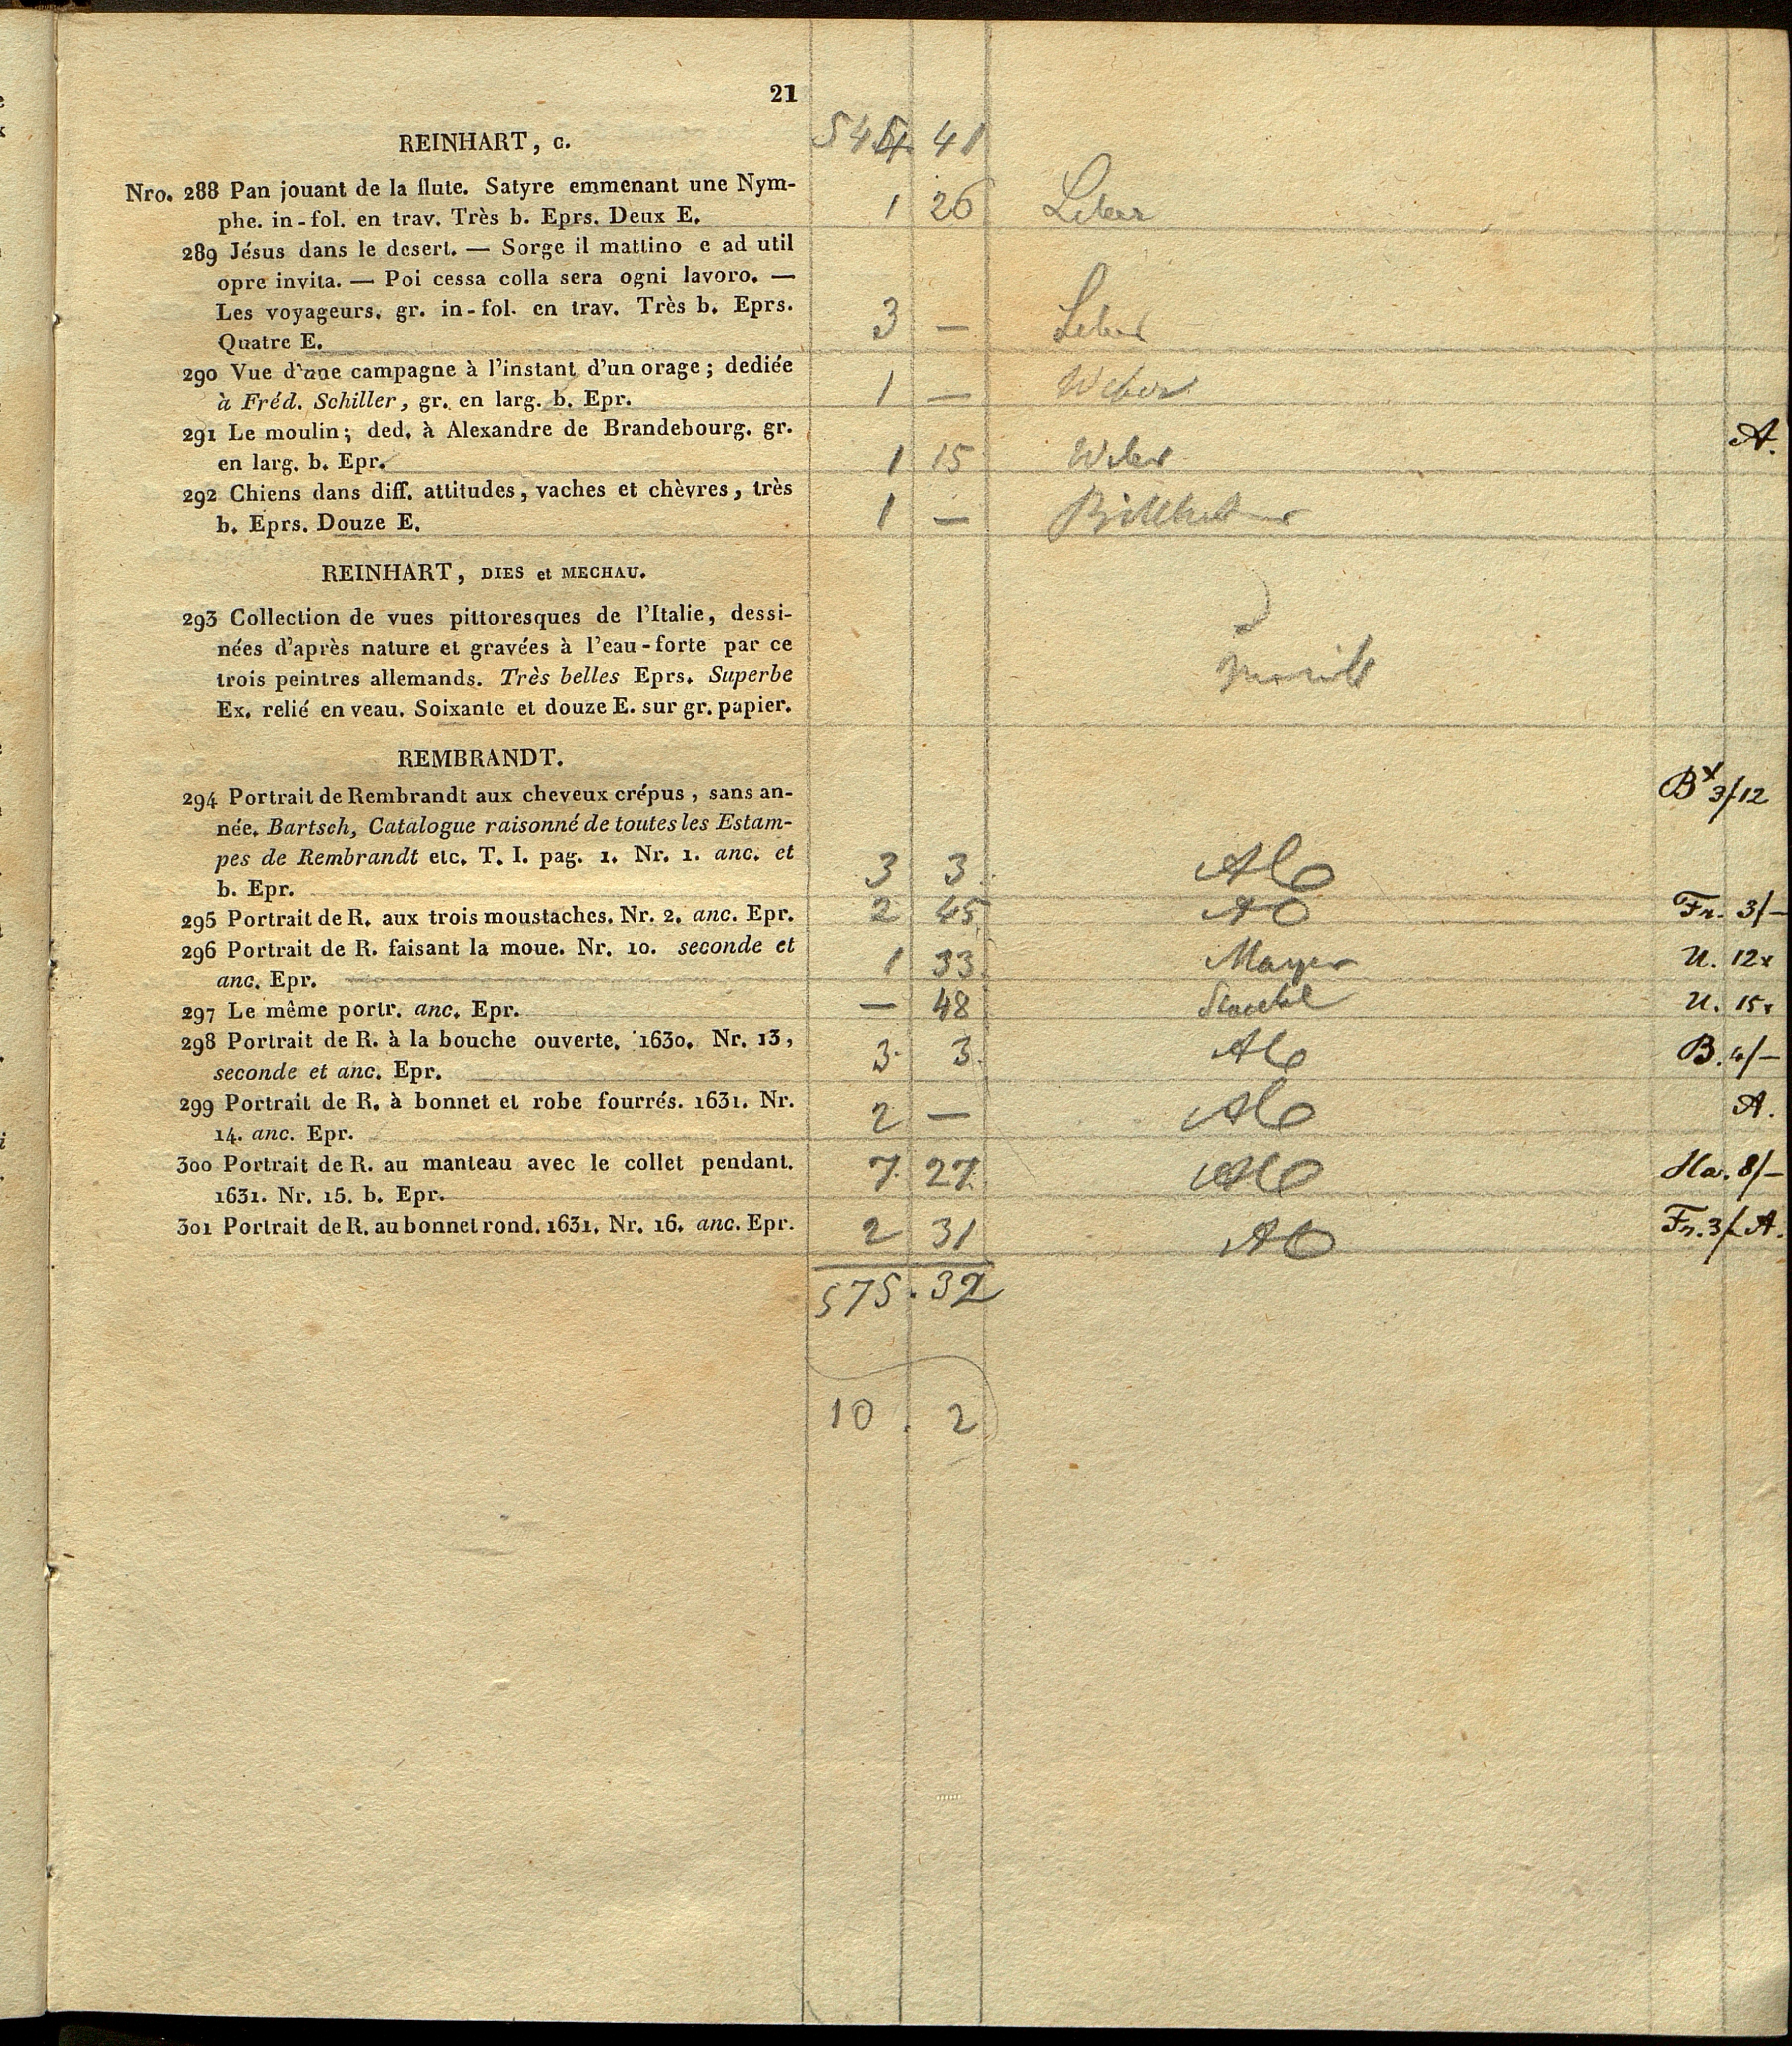 21
REINHART, C. 544. 41
Nro. 288 Pan jouant de la flute. Satyre emmenant une Nym-
phe. in-fol. en trav. Très b. Eprs. Deux E. 1 26
289 Jésus dans le desert. — Sorge il mattino e ad util
opre invita. — Poi cessa colla sera ogni lavoro. —
Les voyageurs. gr. in-fol. en trav. Très b. Eprs.
Quatre E. 3 —
290 Vue d'une campagne à l'instant d'un orage; dediée
à Fréd. Schiller, gr. en larg. b. Epr. 1 — Weber
291 Le moulin; ded. à Alexandre de Brandebourg. gr. A.
en larg. b. Epr. 1 15 Weber
292 Chiens dans diff. attitudes, vaches et chèvres, très
b. Eprs. Douze E. 1 —
REINHART, DIES et MECHAU.
293 Collection de vues pittoresques de l'Italie, dessi-
nées d'après nature et gravées à l'eau-forte par ce
trois peintres allemands. Très belles Eprs. Superbe
Ex. relié en veau. Soixante et douze E. sur gr. papier.
REMBRANDT.
294 Portrait de Rembrandt aux cheveux crépus, sans an- Bx 3/12
née. Bartsch, Catalogue raisonné de toutes les Estam-
pes de Rembrandt etc. T. I. pag. 1. Nr. 1. anc. et
b. Epr. 3 3
295 Portrait de R. aux trois moustaches. Nr. 2. anc. Epr. 2 45 Fr. 3/—
296 Portrait de R. faisant la moue. Nr. 10. seconde et
anc. Epr. 1 33 Mayer U. 12x
297 Le même portr. anc. Epr. — 48 U. 15x
298 Portrait de R. à la bouche ouverte. 1630. Nr. 13,
seconde et anc. Epr. 3 3 B. 4/—
299 Portrait de R. à bonnet et robe fourrés. 1631. Nr.
14. anc. Epr. 2 — A.
300 Portrait de R. au manteau avec le collet pendant.
1631. Nr. 15. b. Epr. 7 27 Ha. 8/—
301 Portrait de R. au bonnet rond. 1631. Nr. 16. anc. Epr. 2 31 Fr. 3/ A.
575 . 32
10 . 2